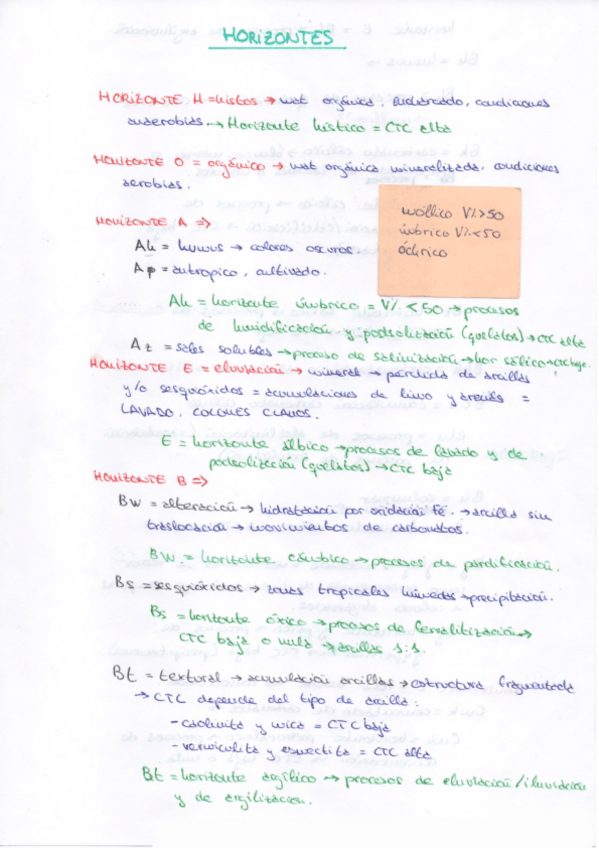 HORIZONTES
HORIZONTE H = histos → mat orgánica, hidratado, condiciones
anaerobias → Horizonte hístico = CTC alta
HORIZONTE O = orgánico → mat orgánica mineralizada, condiciones
aerobias.
móllico V%>50
úmbrico V%<50
óchrico
HORIZONTE A =>
Ah = humus → colores oscuros.
Ap = antropico, cultivado.
Ah = horizonte úmbrico = V% < 50 → procesos
de humidificación y podsolización (quelatos) → CTC alta
Az = sales solubles → proceso de salinización → hor sálico → CTC baja.
HORIZONTE E = eluviación → mineral → pérdida de arcillas
y/o sesquióxidos = acumulaciones de limo y arenas =
LAVADO, COLORES CLAROS.
E = horizonte álbico → procesos de lavado y de
podsolización (quelatos) → CTC baja
HORIZONTE B =>
Bw = alteración → hidratación por oxidación Fe. → arcilla sin
traslocación → movimientos de carbonatos.
Bw = horizonte cámbico → procesos de pardificación.
Bs = sesquióxidos → zonas tropicales húmedas → precipitación.
Bs = horizonte óxico → procesos de ferralitización →
CTC baja o nula → arcillas 1:1.
Bt = textural → acumulación arcillas → estructura fragmentada
→ CTC depende del tipo de arcilla:
- caolinita y mica = CTC baja
- vermiculita y esmectita = CTC alta
Bt = horizonte argílico → procesos de eluviación/iluviación
y de argilización.